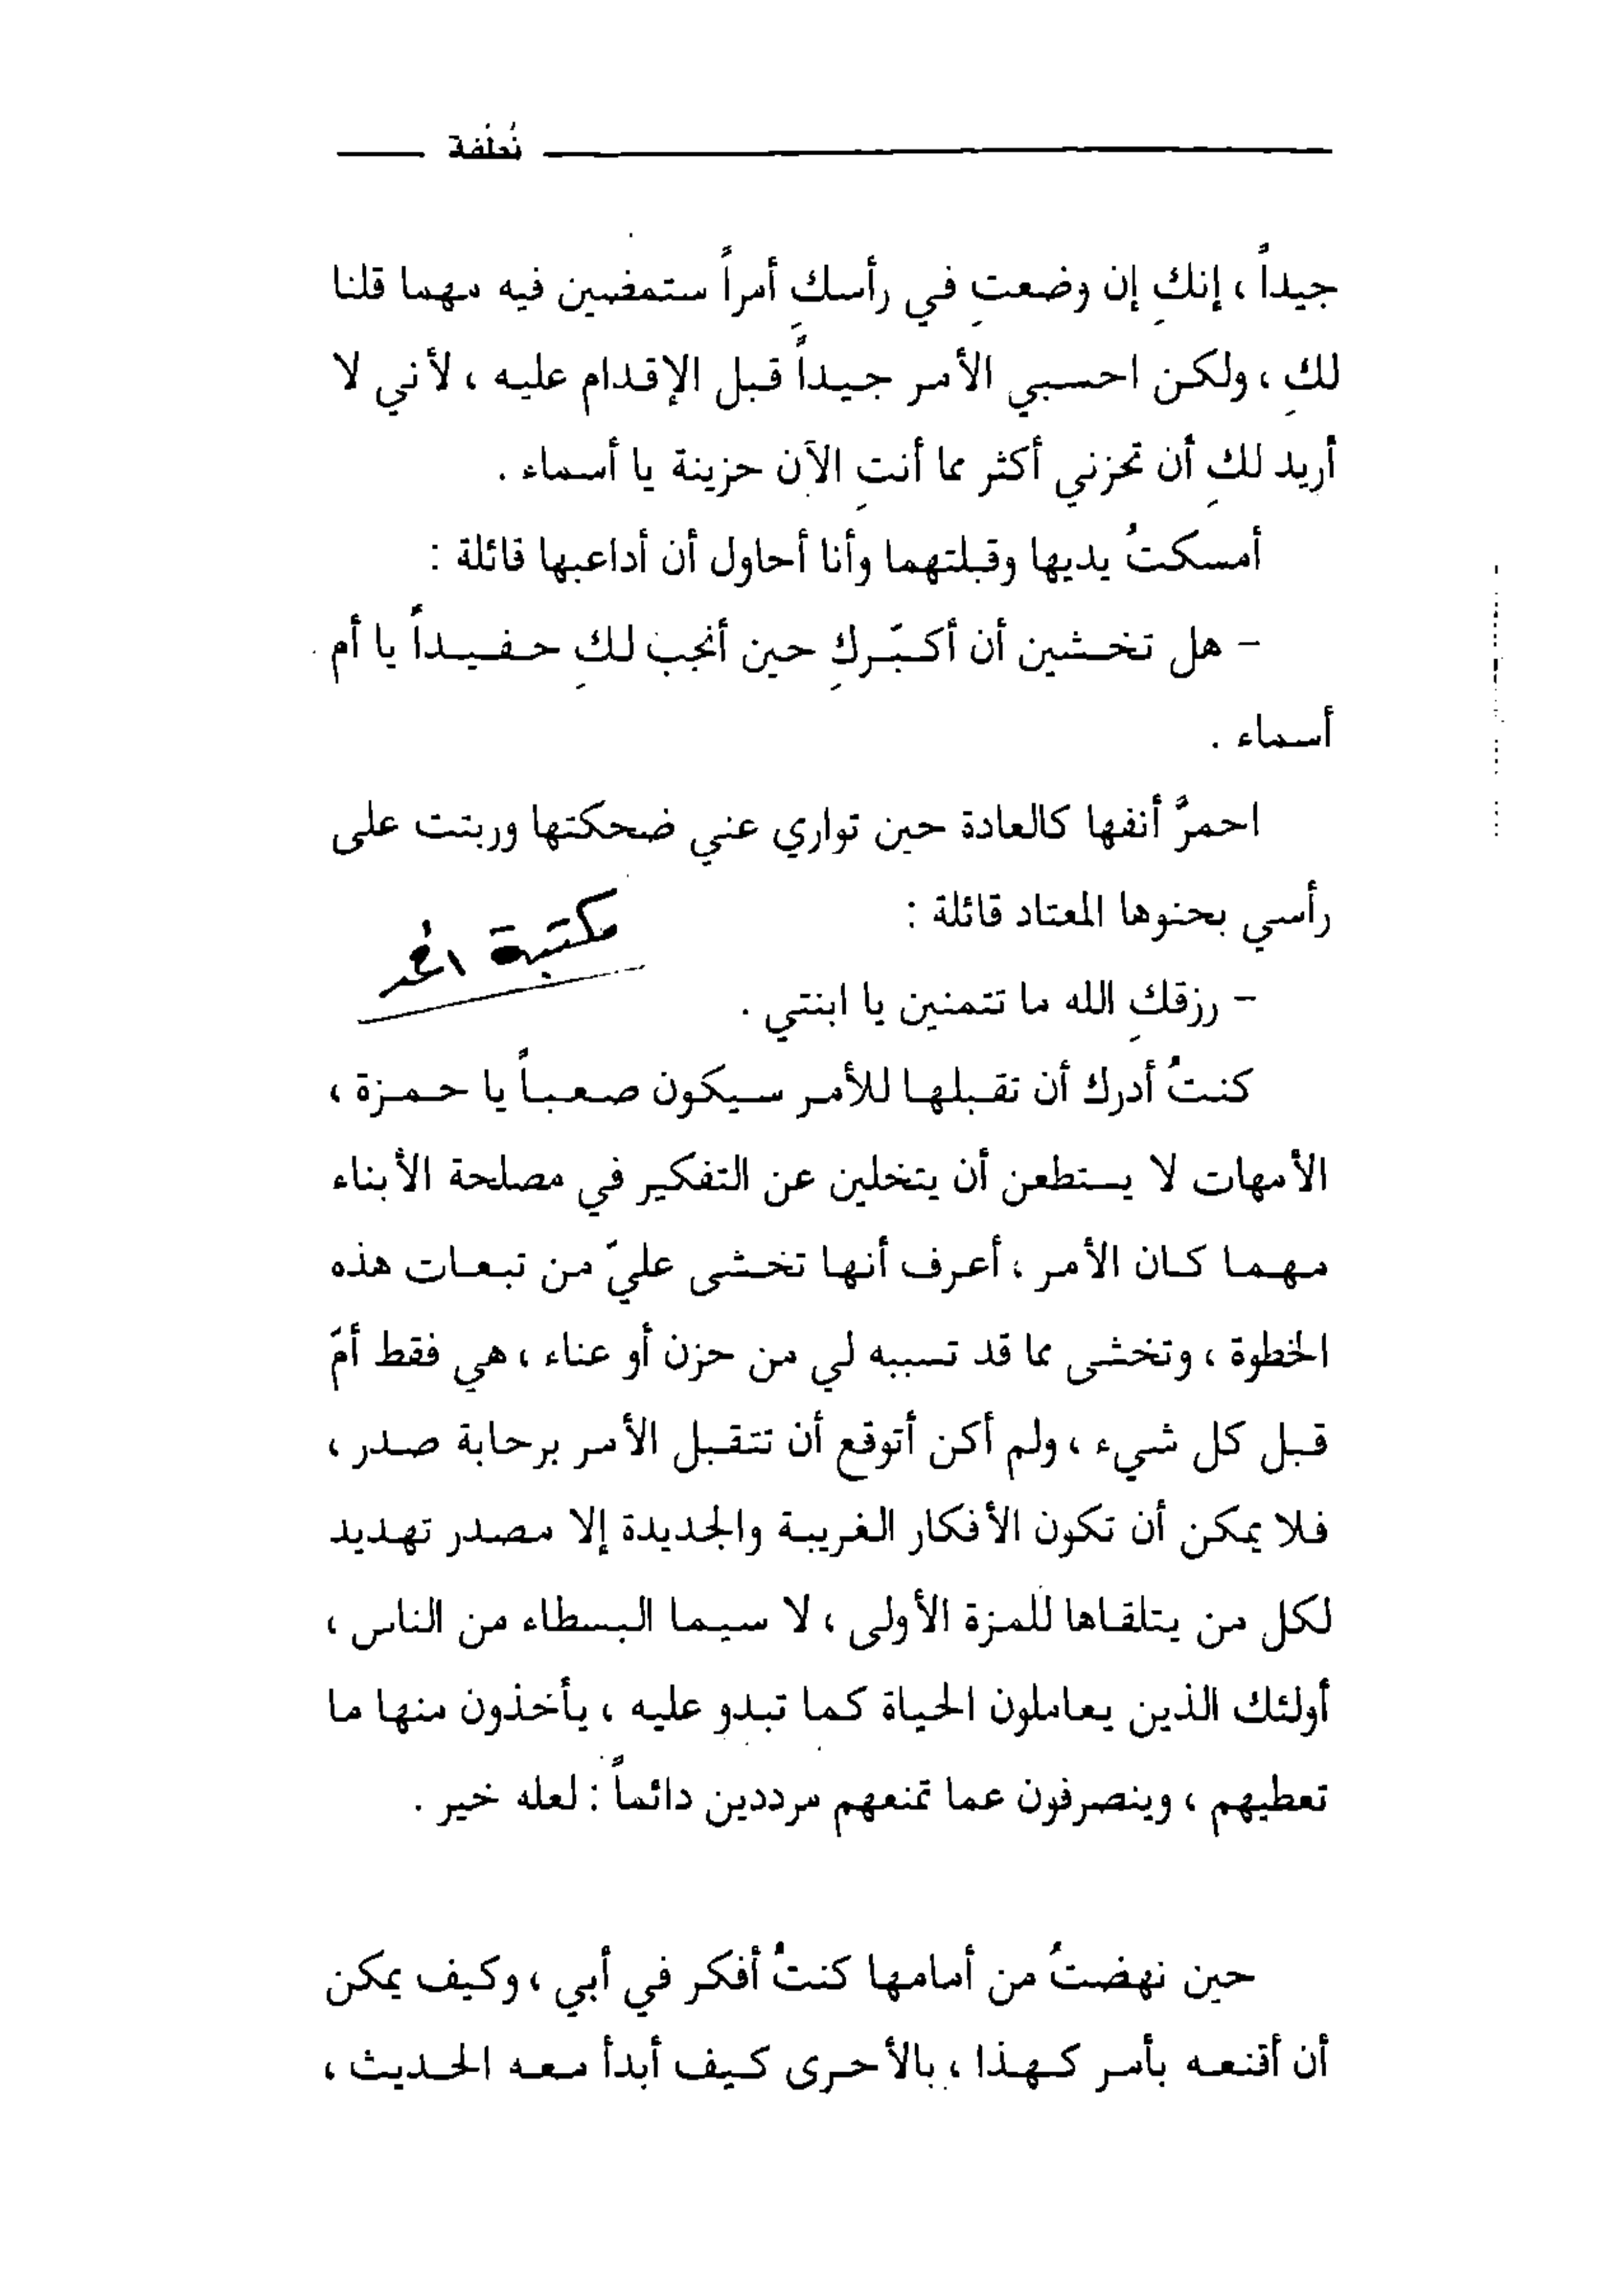 نُطْفة
جيداً ، إنكِ إن وضعتِ في رأسكِ أمراً ستمضين فيه مهما قلنا
لكِ ، ولكن احسبي الأمر جيداً قبل الإقدام عليه ، لأني لا
أريد لكِ أن تحزني أكثر مما أنتِ الآن حزينة يا أسماء .
أمسكتُ يديها وقبلتهما وأنا أحاول أن أداعبها قائلة :
– هل تخشين أن أكبّركِ حين أنجب لكِ حفيداً يا أم
أسماء .
احمرَّ أنفها كالعادة حين تواري عني ضحكتها وربتت على
رأسي بحنوها المعتاد قائلة :
مكتبة
– رزقكِ الله ما تتمنين يا ابنتي .
كنتُ أدرك أن تقبلها للأمر سيكون صعباً يا حمزة ،
الأمهات لا يستطعن أن يتخلين عن التفكير في مصلحة الأبناء
مهما كان الأمر ، أعرف أنها تخشى عليّ من تبعات هذه
الخطوة ، وتخشى مما قد تسببه لي من حزن أو عناء ، هي فقط أمّ
قبل كل شيء ، ولم أكن أتوقع أن تتقبل الأمر برحابة صدر ،
فلا يمكن أن تكون الأفكار الغريبة والجديدة إلا مصدر تهديد
لكل من يتلقاها للمرة الأولى ، لا سيما البسطاء من الناس ،
أولئك الذين يعاملون الحياة كما تبدو عليه ، يأخذون منها ما
تعطيهم ، وينصرفون عما تمنعهم مرددين دائماً : لعله خير .
حين نهضتُ من أمامها كنتُ أفكر في أبي ، وكيف يمكن
أن أقنعه بأمر كهذا ، بالأحرى كيف أبدأ معه الحديث ،